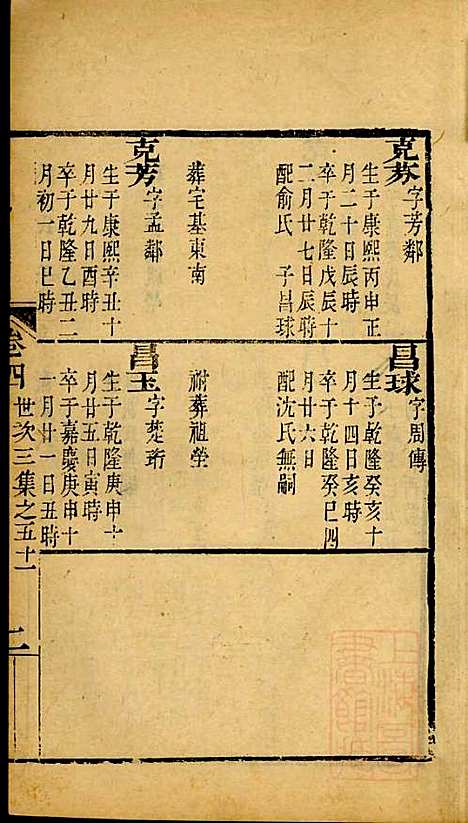 克芬 字芳鄰
生于康熙丙申正
月二十日辰時
卒于乾隆戊辰十
二月廿七日辰時
配俞氏 子昌球
葬宅基東南
克芳 字孟鄰
生于康熙辛丑十
月廿九日酉時
卒于乾隆乙丑二
月初一日巳時
昌球 字周傳
生于乾隆癸亥十
月十四日亥時
卒于乾隆癸巳四
月廿六日
配沈氏無嗣
祔葬祖塋
昌玉 字楚珩
生于乾隆庚申十
月廿五日寅時
卒于嘉慶庚申十
一月廿一日丑時
卷四 世次三集之五十一 二
上海圖書館藏